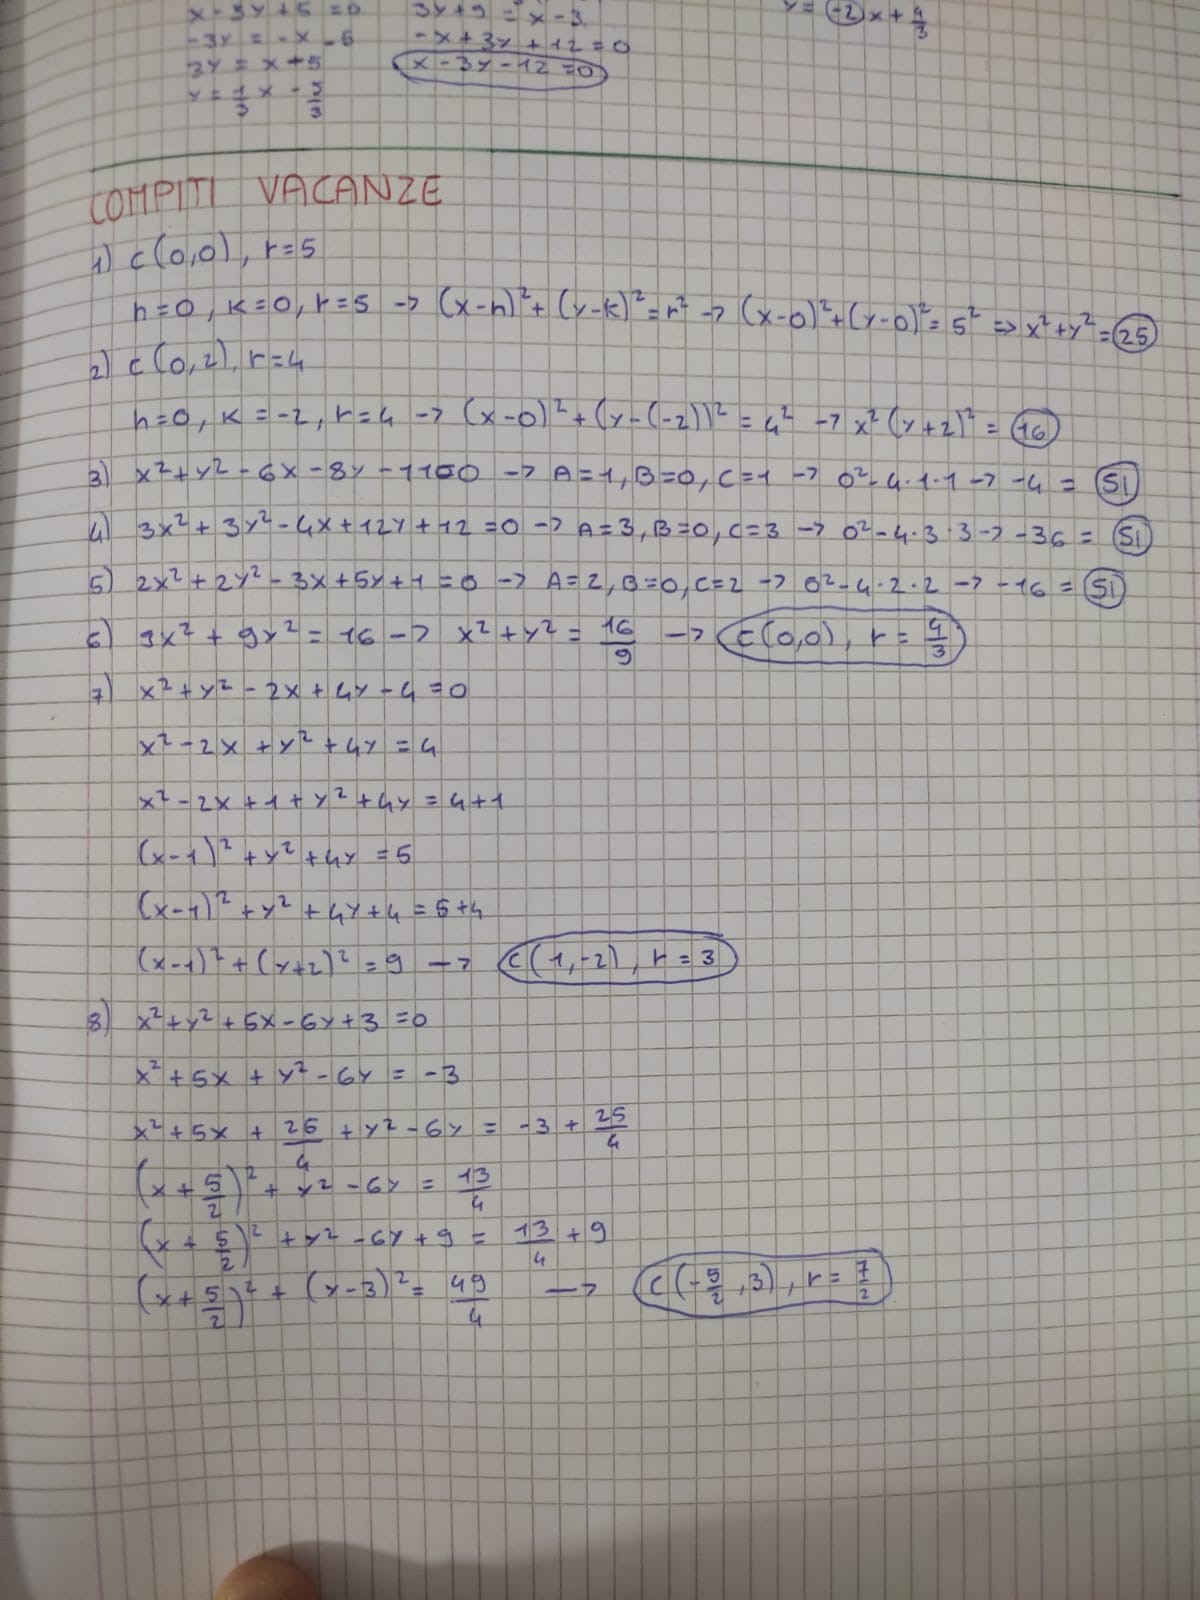 x-3y+5=0 3y+9=x-3 y=-2x+4/3
-3y=-x-5 -x+3y+12=0
3y=x+5 x-3y-12=0
y=1/3x-5/3
COMPITI VACANZE
1) C(0,0), r=5
h=0, k=0, r=5 → (x-h)²+(y-k)²=r² → (x-0)²+(y-0)²=5² ⇒ x²+y²=25
2) C(0,2), r=4
h=0, k=-2, r=4 → (x-0)²+(y-(-2))²=4² → x²(y+2)²=16
3) x²+y²-6x-8y-1100 → A=1, B=0, C=1 → 0²-4·1·1 → -4 = SI
4) 3x²+3y²-4x+12y+12=0 → A=3, B=0, C=3 → 0²-4·3·3 → -36 = SI
5) 2x²+2y²-3x+5y+1=0 → A=2, B=0, C=2 → 0²-4·2·2 → -16 = SI
6) 9x²+9y²=16 → x²+y²=16/9 → C(0,0), r=4/3
7) x²+y²-2x+4y-4=0
x²-2x+y²+4y=4
x²-2x+1+y²+4y=4+1
(x-1)²+y²+4y=5
(x-1)²+y²+4y+4=5+4
(x-1)²+(y+2)²=9 → C(1,-2), r=3
8) x²+y²+5x-6y+3=0
x²+5x+y²-6y=-3
x²+5x+25/4+y²-6y=-3+25/4
(x+5/2)²+y²-6y=13/4
(x+5/2)²+y²-6y+9=13/4+9
(x+5/2)²+(y-3)²=49/4 → C(-5/2,3), r=7/2